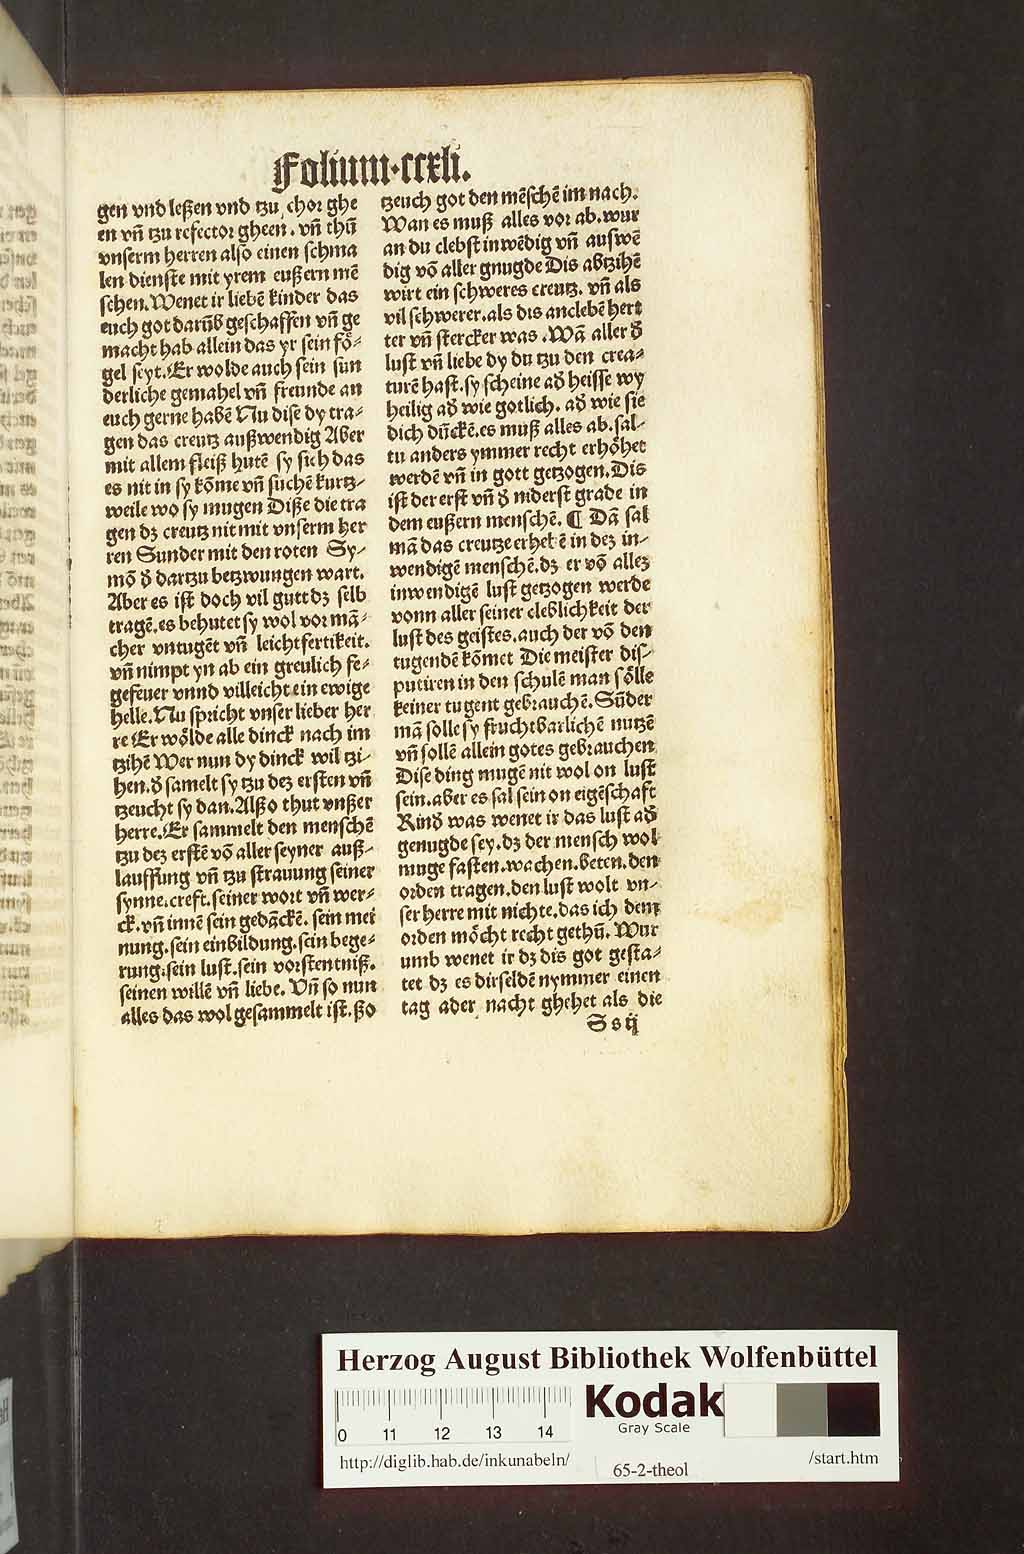 Folium·ccxli.
gen vnd leßen vnd tzu chor ghe
en vñ tzu refector gheen. vñ thũ
vnserm herren also einen schma
len dienste mit yrem eußern mē
schen. Wenet ir liebē kinder das
euch got darūb geschaffen vñ ge
macht hab allein das yr sein fö⸗
gel seyt. Er wolde auch sein sun
derliche gemahel vñ freunde an
euch gerne habē Nu dise dy tra⸗
gen das creutz außwendig Aber
mit allem fleiß hutē sy sich das
es nit in sy kōme vñ suchē kurtz⸗
weile wo sy mugen Diße die tra
gen dz creutz nit mit vnserm her
ren Sunder mit den roten Sy⸗
mō d̄ dartzu betzwungen wart.
Aber es ist doch vil gutt dz selb
tragē. es behutet sy wol vor mā⸗
cher vntugēt vñ leichtfertikeit.
vñ nimpt yn ab ein greulich fe⸗
gefeuer vnnd villeicht ein ewige
helle. Nu spricht vnser lieber her
re Er wölde alle dinck nach im
tzihē Wer nun dy dinck wil tzi⸗
hen. d̄ samelt sy tzu dez ersten vñ
tzeucht sy dan. Alßo thut vnßer
herre. Er sammelt den menschē
tzu dez erstē vō aller seyner auß⸗
lauffung vñ tzu strauung seiner
synne. creft. seiner wort vñ wer⸗
ck. vñ innē sein gedāckē. sein mei
nung. sein einbildung. sein bege⸗
rung. sein lust. sein vorstentniß.
seinen willē vñ liebe. Vñ so nun
alles das wol gesammelt ist. ßo
tzeuch got den mēschē im nach.
Wan es muß alles vor ab. wur
an du clebst inwēdig vñ auswē
dig vō aller gnugde Dis abtzihē
wirt ein schweres creutz. vñ als
vil schwerer. als dis anclebē hert
ter vñ stercker was. Wā aller d̄
lust vñ liebe dy du tzu den crea⸗
turē hast. sy scheine ad̄ heisse wy
heilig ad̄ wie gotlich. ad̄ wie sie
dich dūckē. es muß alles ab. sal⸗
tu anders ymmer recht erhöhet
werdē vñ in gott getzogen. Dis
ist der erst vñ d̄ niderst grade in
dem eußern menschē. ¶ Dā sal
mā das creutze erhebē in dez in⸗
wendigē menschē. dz er vō allez
inwendigē lust getzogen werde
vonn aller seiner cleblichkeit der
lust des geistes. auch der vō den
tugendē kōmet Die meister dis⸗
putiren in den schulē man sölle
keiner tugent gebrauchē. Sūder
mā solle sy fruchtbarlichē nutzē
vñ sollē allein gotes gebrauchen
Dise ding mugē nit wol on lust
sein. aber es sal sein on eigēschaft
Kind̄ was wenet ir das lust ad̄
genugde sey. dz der mensch wol
muge fasten. wachen. beten. den
orden tragen. den lust wolt vn⸗
ser herre mit nichte. das ich dem
orden möcht recht gethū. Wur
umb wenet ir dz dis got gesta⸗
tet dz es dirseldē nymmer einen
tag ader nacht ghehet als die
Ss ij
Herzog August Bibliothek Wolfenbüttel
0 11 12 13 14
Kodak
Gray Scale
http://diglib.hab.de/inkunabeln/
65-2-theol
/start.htm